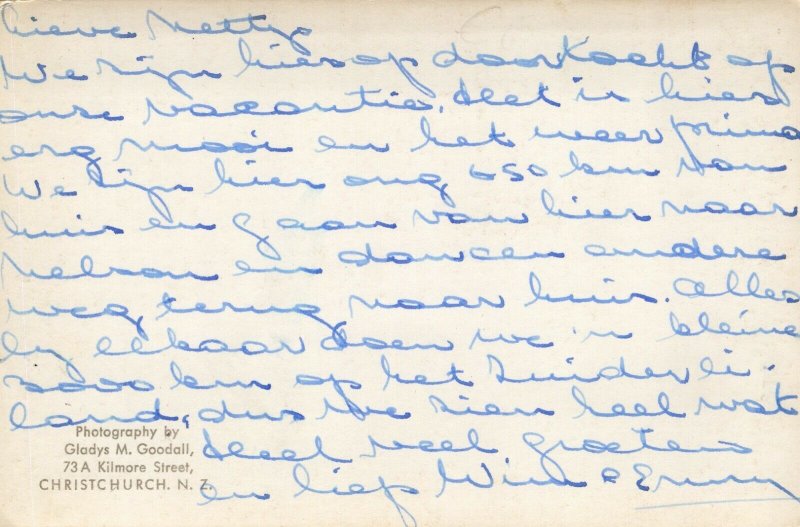 lieve Netty,
We zijn hier op doortocht op
onze vacantie. Het is hier
erg mooi en het weer prima
We zijn hier ong 650 km van
huis en gaan van hier naar
Nelson en dan een andere
weg, terug naar huis. Alles
by elkaar doen we 'n kleine
3000 km op het Zuider ei-
land, dus we zien heel wat
Heel veel groeten
en liefs Wim & Emmy
Photography by
Gladys M. Goodall,
73A Kilmore Street,
CHRISTCHURCH. N. Z.